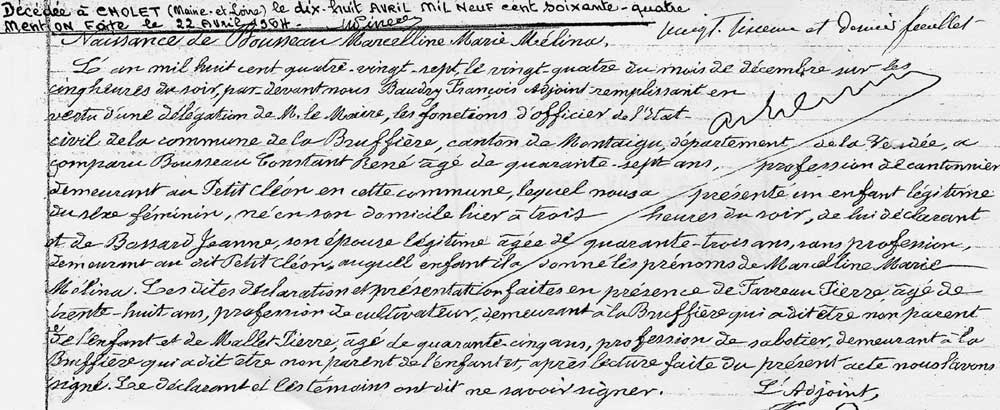 Décédée à CHOLET (Maine-et-Loire) le dix-huit AVRIL MIL NEUF cent soixante-quatre
Mention Faite le 22 Avril 1964.
vingt et dernier feuillet
Naissance de Bousseau Marcelline Marie Mélina.
L'an mil huit cent quatre-vingt-sept, le vingt-quatre du mois de décembre sur les
cinq heures du soir, par-devant nous Baudry François Adjoint remplissant en
vertu d'une délégation de M. le Maire, les fonctions d'officier de l'Etat-
civil de la commune de la Bruffière, canton de Montaigu, département de la Vendée, a
comparu Bousseau Constant René âgé de quarante-sept ans, profession de cantonnier
demeurant au Petit Cléon en cette commune, lequel nous a présenté un enfant légitime
du sexe féminin, né en son domicile hier à trois heures du soir, de lui déclarant
et de Bassard Jeanne, son épouse légitime âgée de quarante-trois ans, sans profession,
demeurant au dit Petit Cléon, auquel enfant il a donné les prénoms de Marcelline Marie
Mélina. Les dites déclaration et présentation faites en présence de Favreau Pierre, âgé de
trente-huit ans, profession de cultivateur, demeurant à la Bruffière qui a dit être non parent
de l'enfant et de Mallet Pierre, âgé de quarante-cinq ans, profession de sabotier, demeurant à la
Bruffière qui a dit être non parent de l'enfant et, après lecture faite du présent acte nous l'avons
signé. Le déclarant et les témoins ont dit ne savoir signer. L'Adjoint,